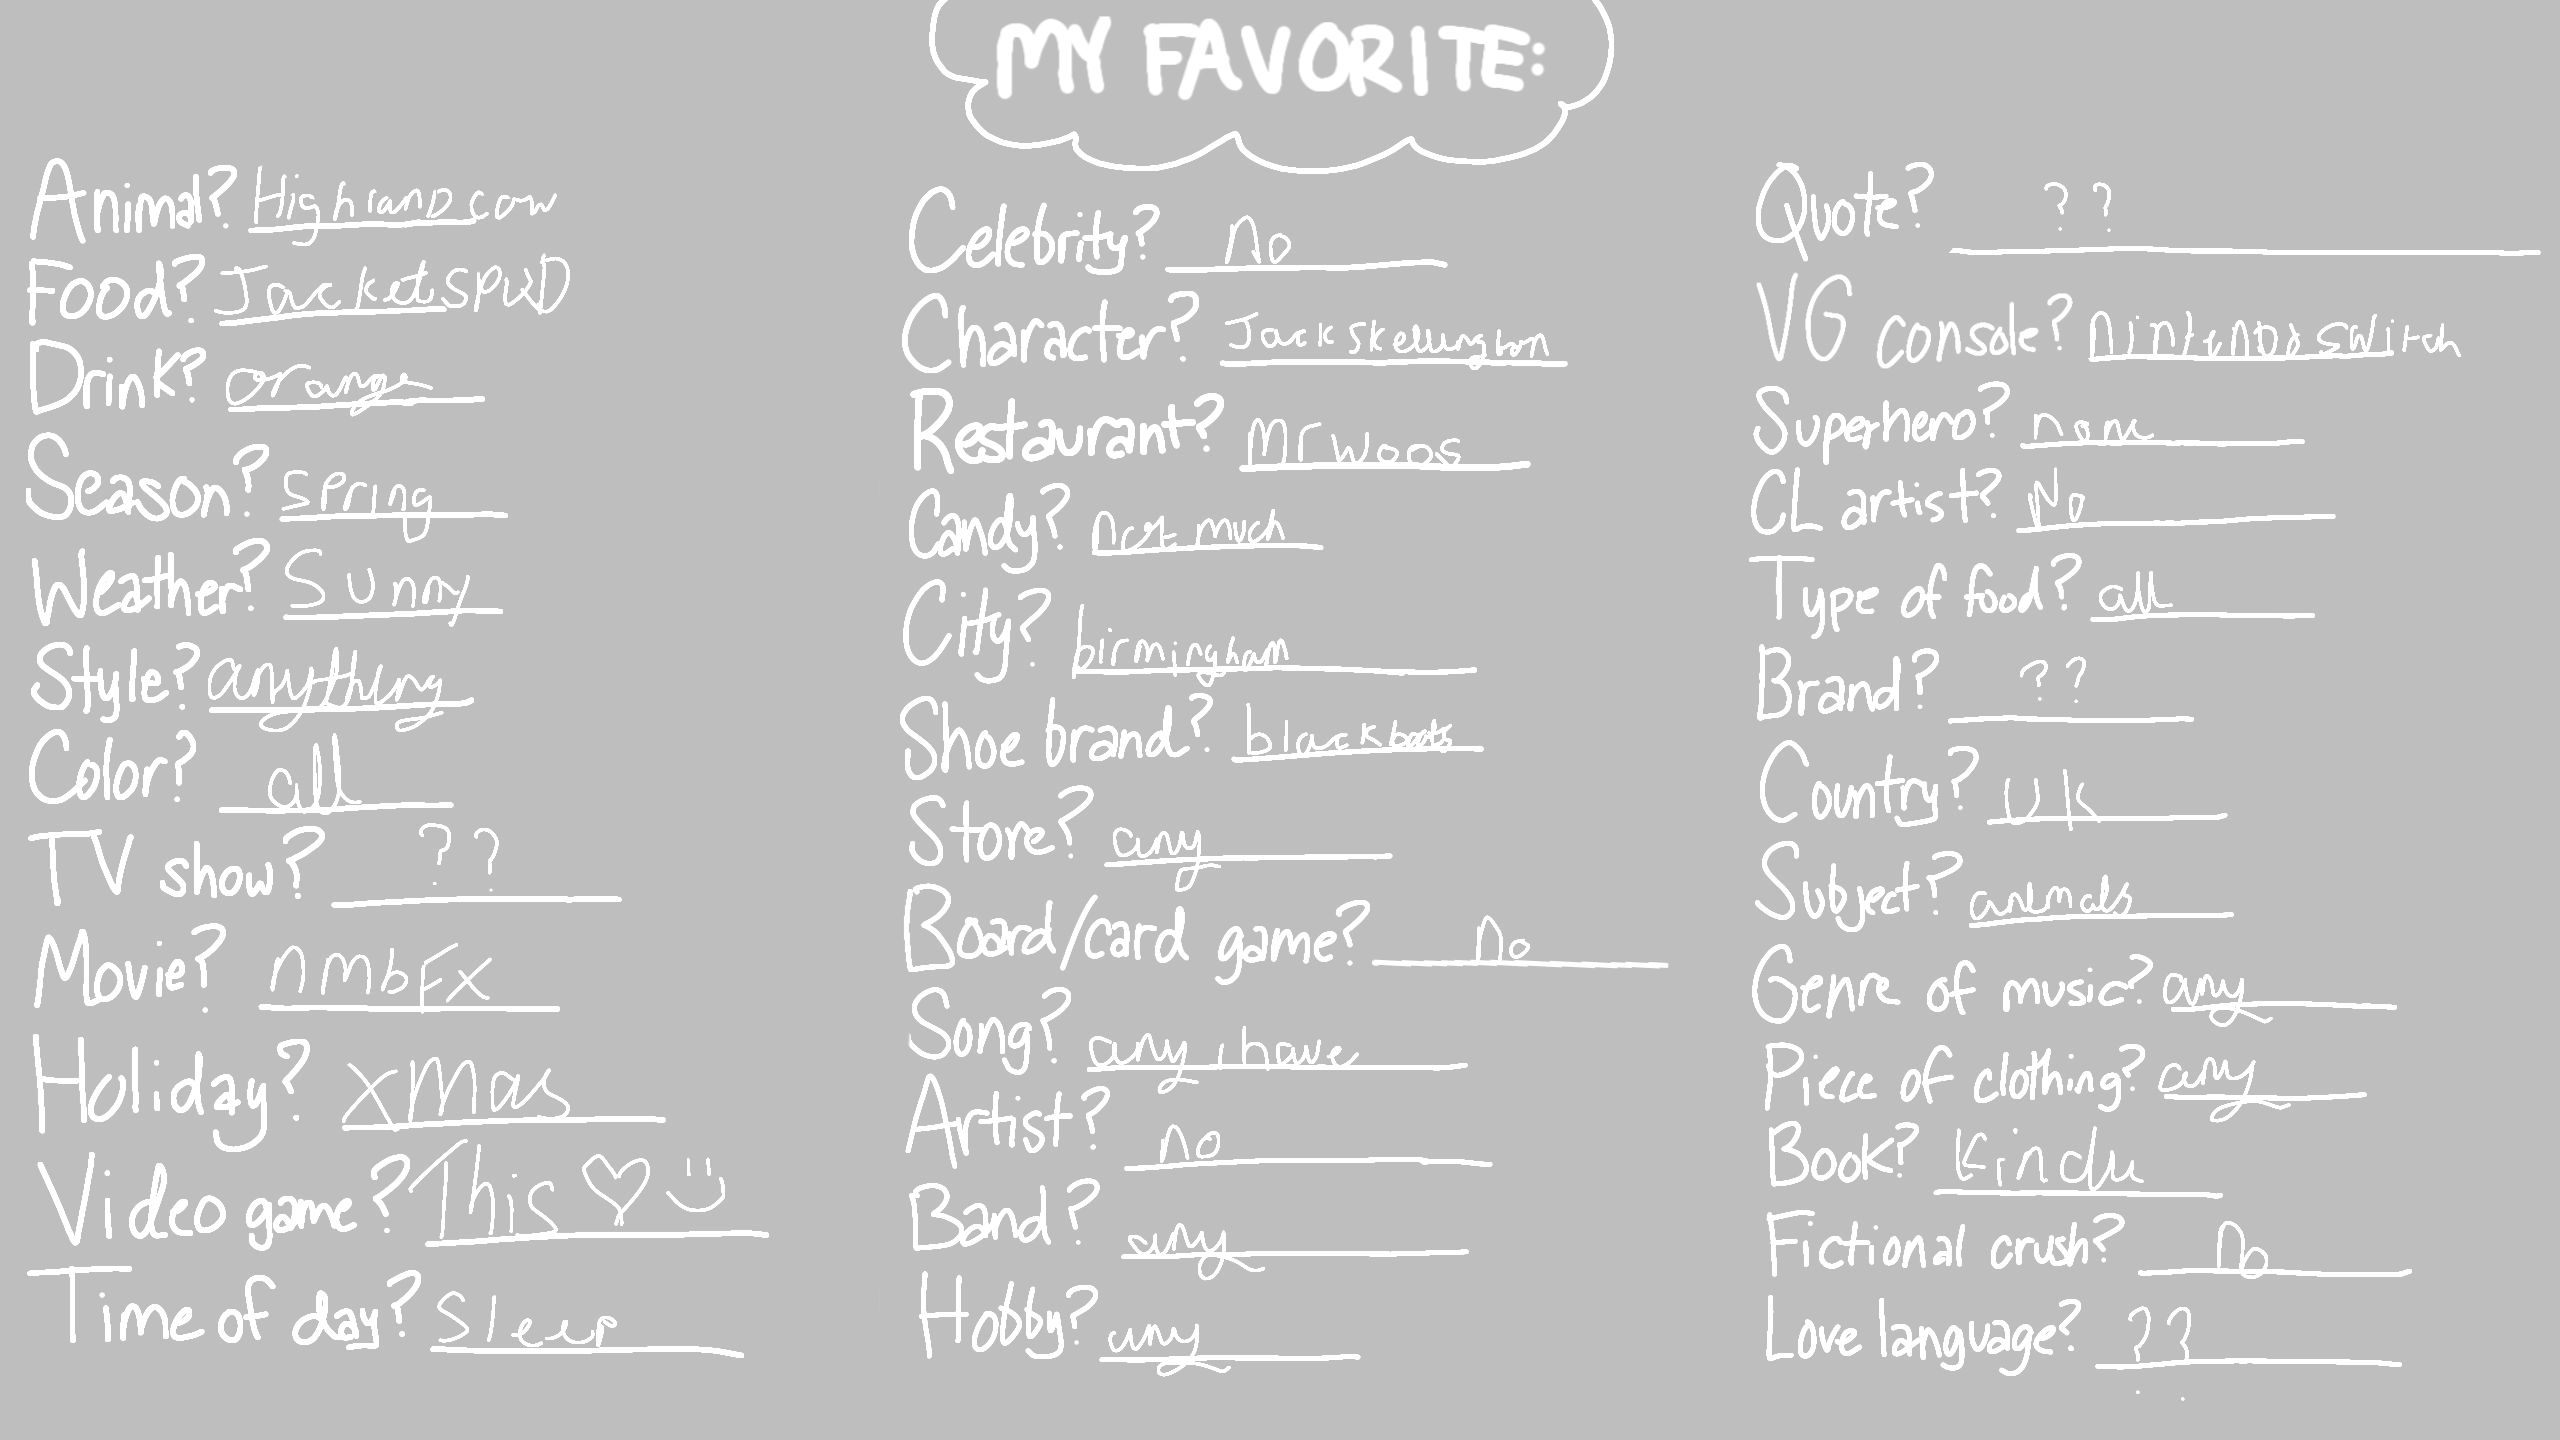 MY FAVORITE:
Animal? Highland cow
Food? Jacket SPUD
Drink? orange
Season? spring
Weather? Sunny
Style? anything
Color? all
TV show? ??
Movie? nmbFx
Holiday? xmas
Video game? This ♡ :)
Time of day? Sleep
Celebrity? no
Character? Jack Skellington
Restaurant? Mr woos
Candy? not much
City? birmingham
Shoe brand? black boots
Store? any
Board/card game? no
Song? any i have
Artist? no
Band? any
Hobby? any
Quote? ??
VG console? nintendo switch
Superhero? none
CL artist? No
Type of food? all
Brand? ??
Country? UK
Subject? animals
Genre of music? any
Piece of clothing? any
Book? Kindle
Fictional crush? No
Love language? ??